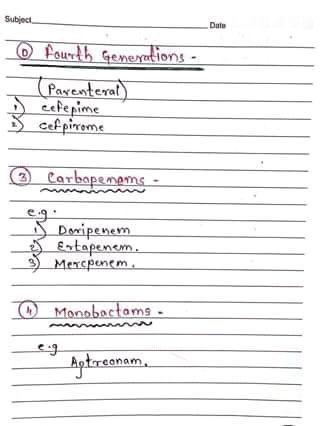 Subject Date
(D) Fourth Generations -
(Parenteral)
1) cefepime
2) cefpirome
(3) Carbapenems -
e.g.
1) Doripenem
2) Ertapenem.
3) Meropenem.
(4) Monobactams -
e.g
Aztreonam.